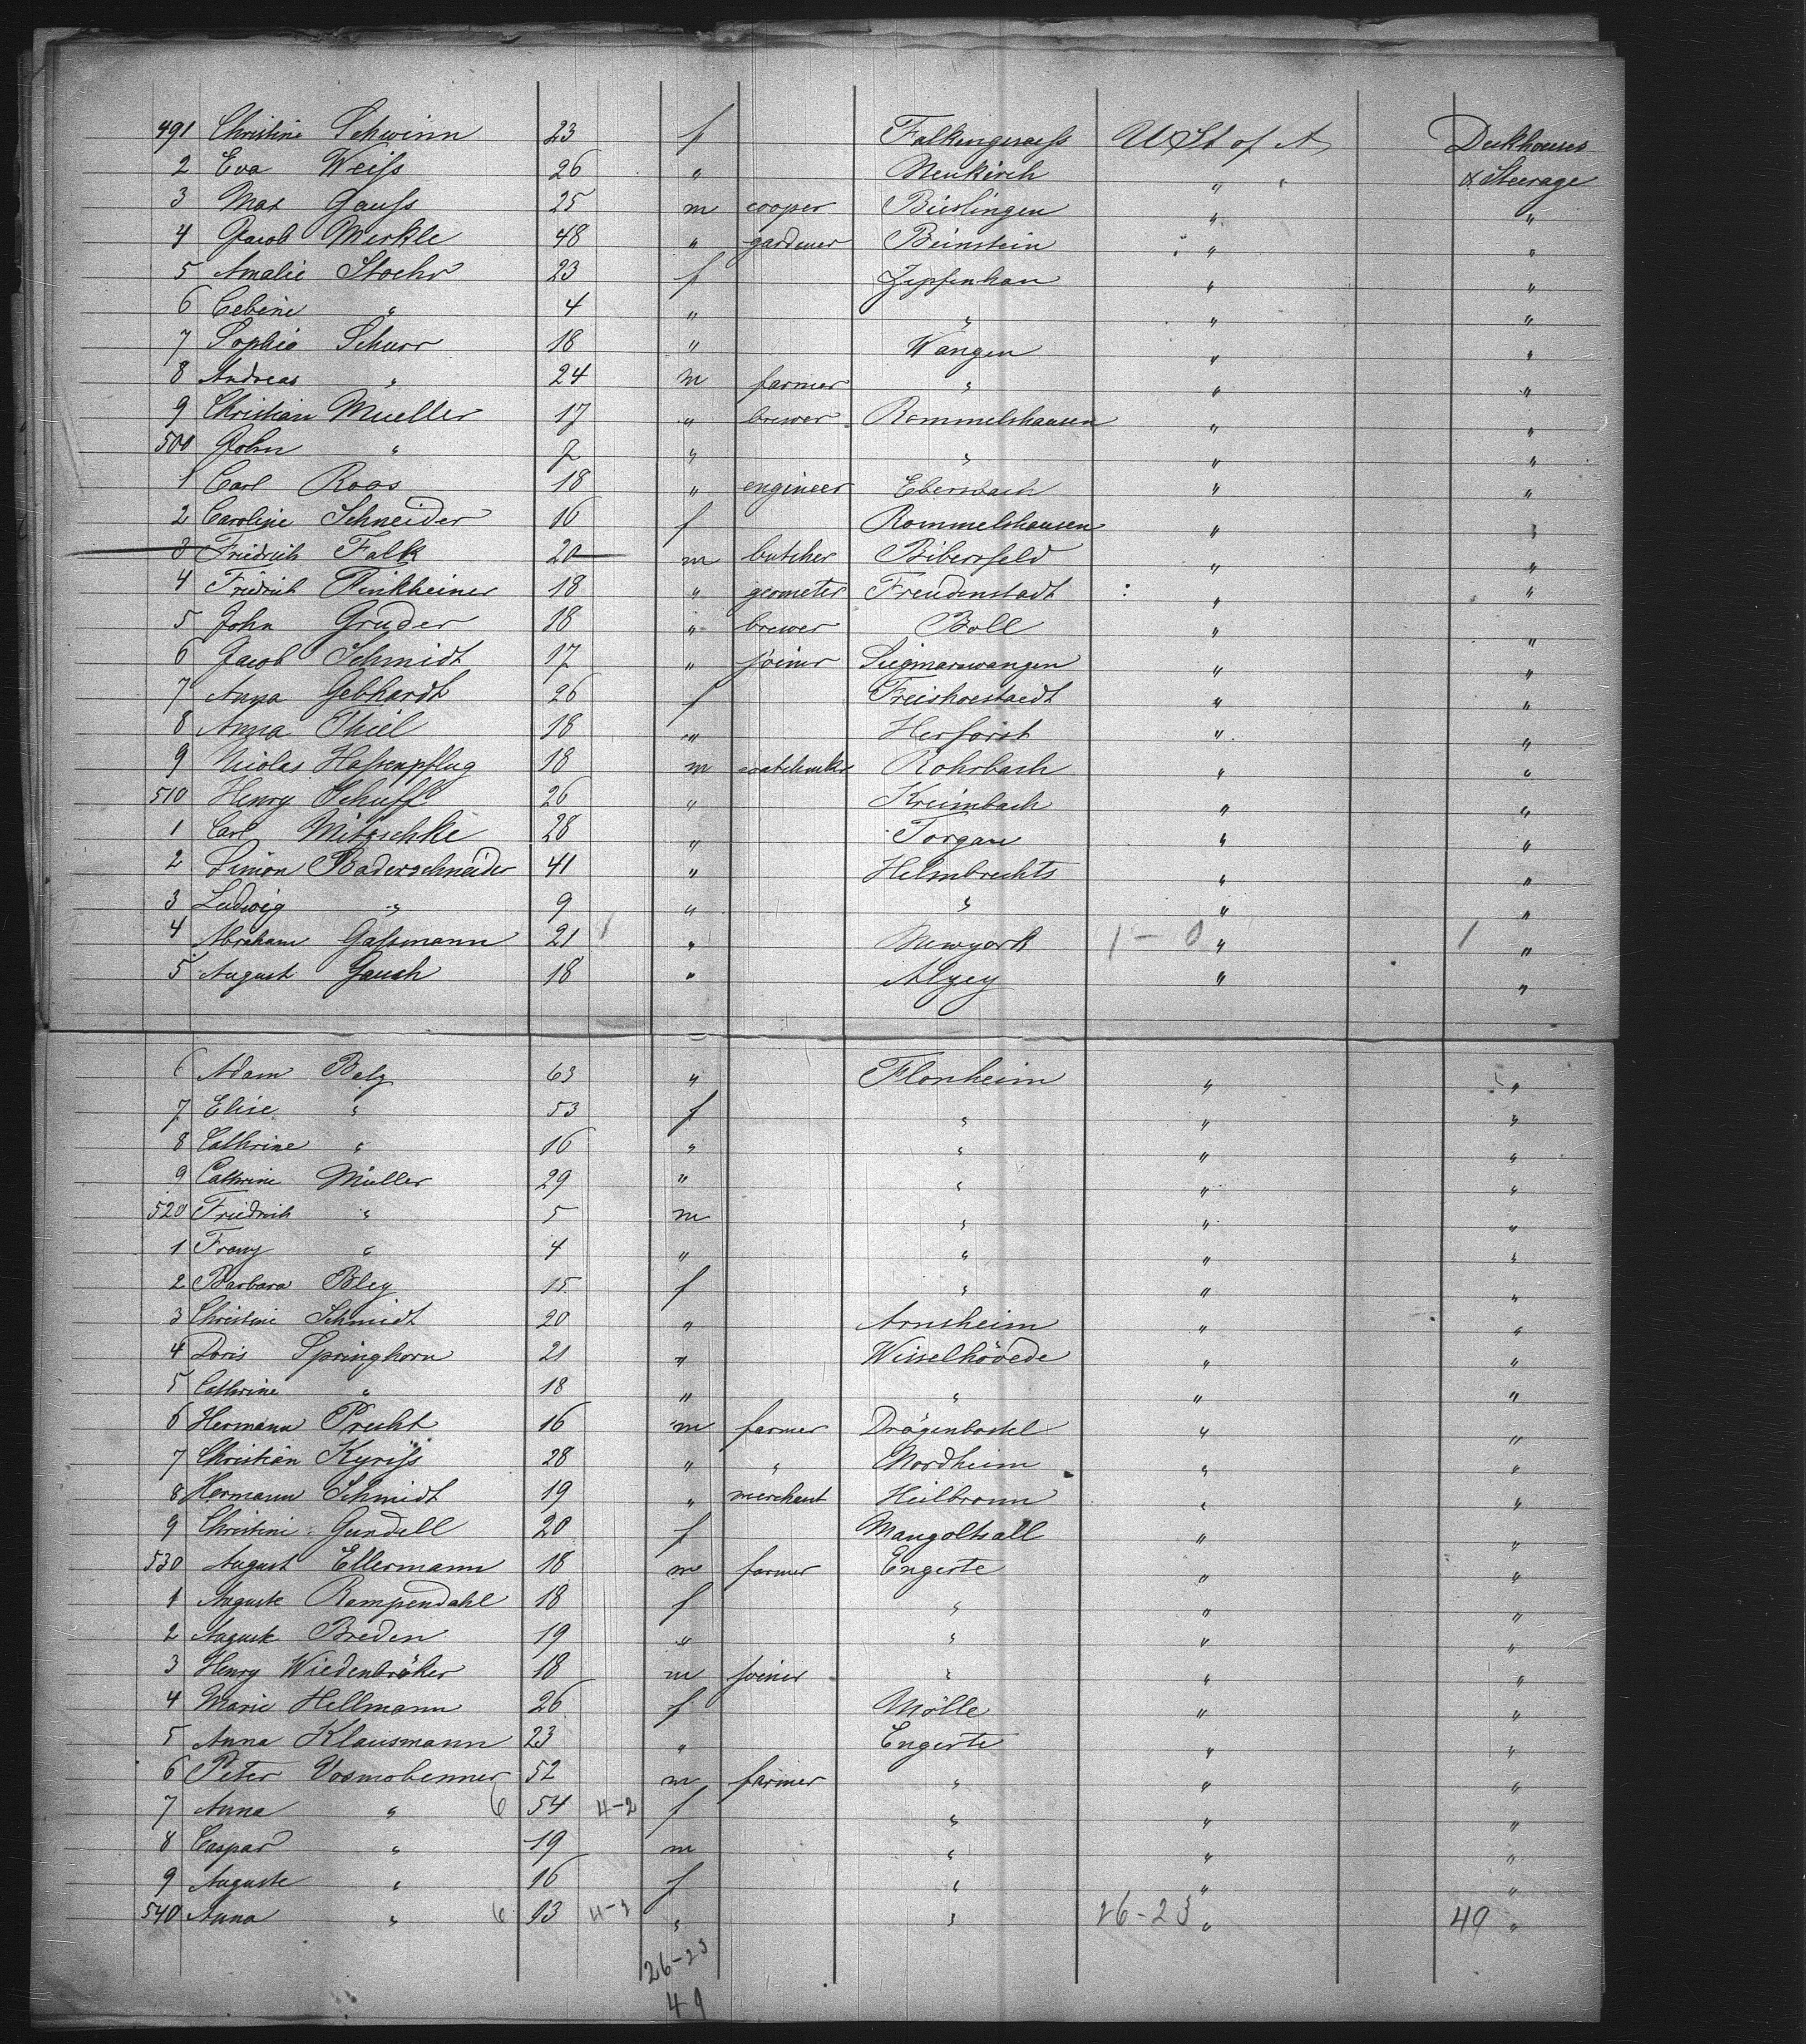 491 Christine Schwinn 23 f Falkengesaess U St of A Deckhouses
2 Eva Weiss 26 " Neukirch " & Steerage
3 Max Gauss 25 m cooper Bierlingen " "
4 Jacob Merkle 48 " gardener Beinstein " "
5 Amalie Stoehr 23 f Zepfenhan " "
6 Cebine " 4 " " " "
7 Sophie Schurr 18 " Wangen " "
8 Andreas " 24 m farmer " " "
9 Christian Mueller 17 " brewer Rommelshausen " "
500 John " 7 " " " "
1 Carl Roos 18 " engineer Ebersbach " "
2 Caroline Schneider 16 f Rommelshausen " "
3 Friedrich Falk 20 m butcher Bibersfeld " "
4 Friedrich Finkheiner 18 " geometer Freudenstadt " "
5 John Gruder 18 " brewer Boll " "
6 Jacob Schmidt 17 " joiner Siegmarswangen " "
7 Anna Gebhardt 26 f Freishoestaedt " "
8 Anna Thiel 18 " Herforst " "
9 Nicolas Hassenpflug 18 m watchmkr Rohrbach " "
510 Henry Schuff 26 " Kreimbach " "
1 Carl Mitzschke 28 " Torgau " "
2 Simon Baderschneider 41 " Helmbrechts " "
3 Ludwig " 9 " " " "
4 Abraham Gassmann 21 1 " Newyork 1-0 " 1 "
5 August Gauch 18 " Alzey " "
6 Adam Balz 63 " Flonheim " "
7 Elise " 53 f " " "
8 Cathrine " 16 " " " "
9 Cathrine Müller 29 " " " "
520 Friedrich " 5 m " " "
1 Franz " 4 " " " "
2 Barbara Bley 15 f " " "
3 Christine Schmidt 20 " Arnsheim " "
4 Doris Springhorn 21 " Wisselhövede " "
5 Cathrine " 18 " " " "
6 Hermann Precht 16 m farmer Drögenbostel " "
7 Christian Kyriss 28 " " Nordheim " "
8 Hermann Schmidt 19 " merchant Heilbronn " "
9 Christine Gundell 20 f Mangoltsall " "
530 August Ellermann 18 m farmer Engerte " "
1 Auguste Rempendahl 18 f " " "
2 Auguste Breden 19 " " " "
3 Henry Wiedenbröker 18 m joiner " " "
4 Marie Hellmann 26 f Mölle " "
5 Anna Klausmann 23 " Engerte " "
6 Peter Vosmobenner 52 m farmer " " "
7 Anna " 6 54 4-2 f " " "
8 Caspar " 19 m " " "
9 Auguste " 16 f " " "
540 Anna " 6 13 4-2 " " 26-23 " 49 "
26-23
49